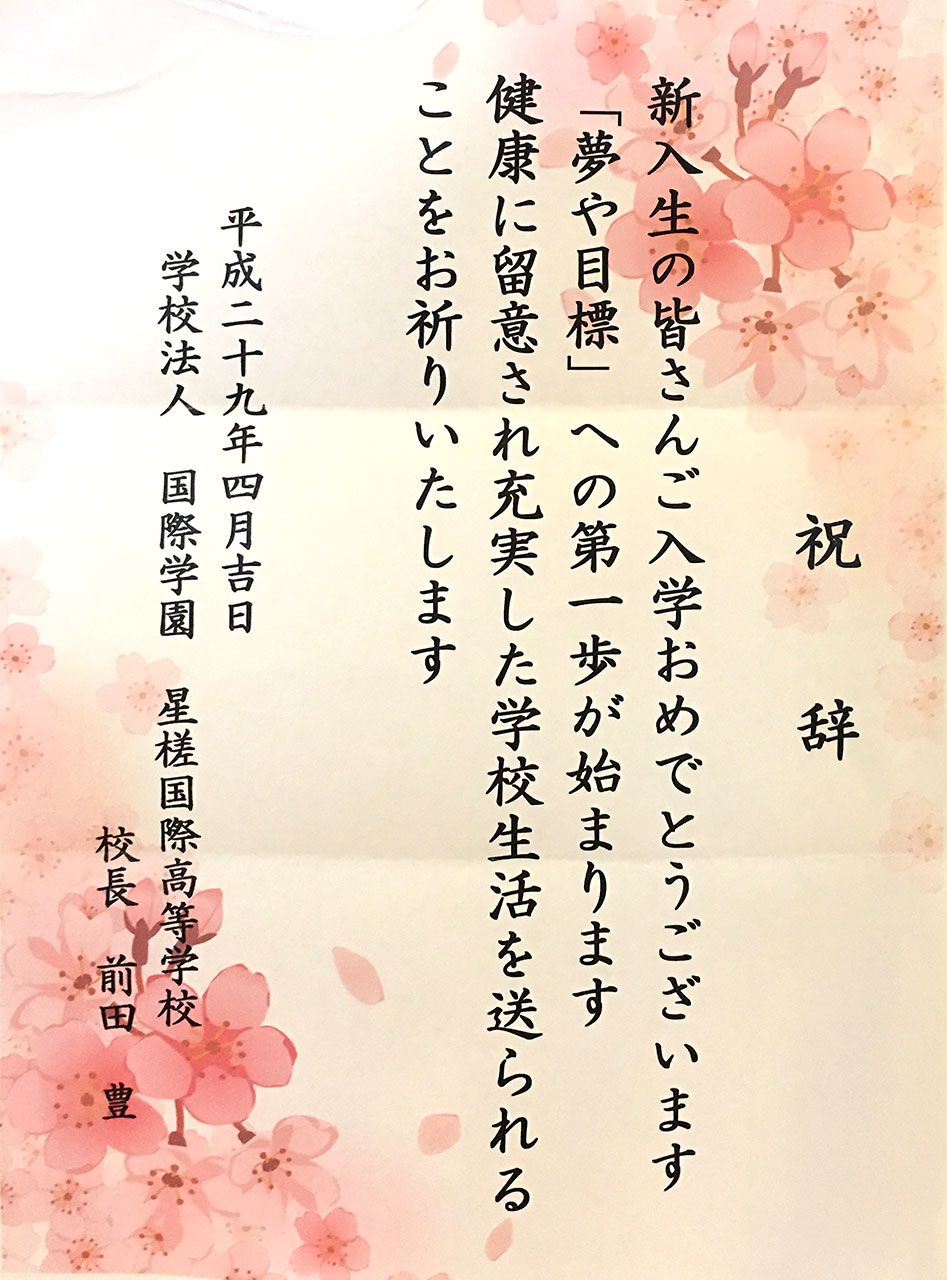 祝辞
新入生の皆さんご入学おめでとうございます
「夢や目標」への第一歩が始まります
健康に留意され充実した学校生活を送られる
ことをお祈りいたします
平成二十九年四月吉日
学校法人　国際学園　星槎国際高等学校
校長　前田　豊